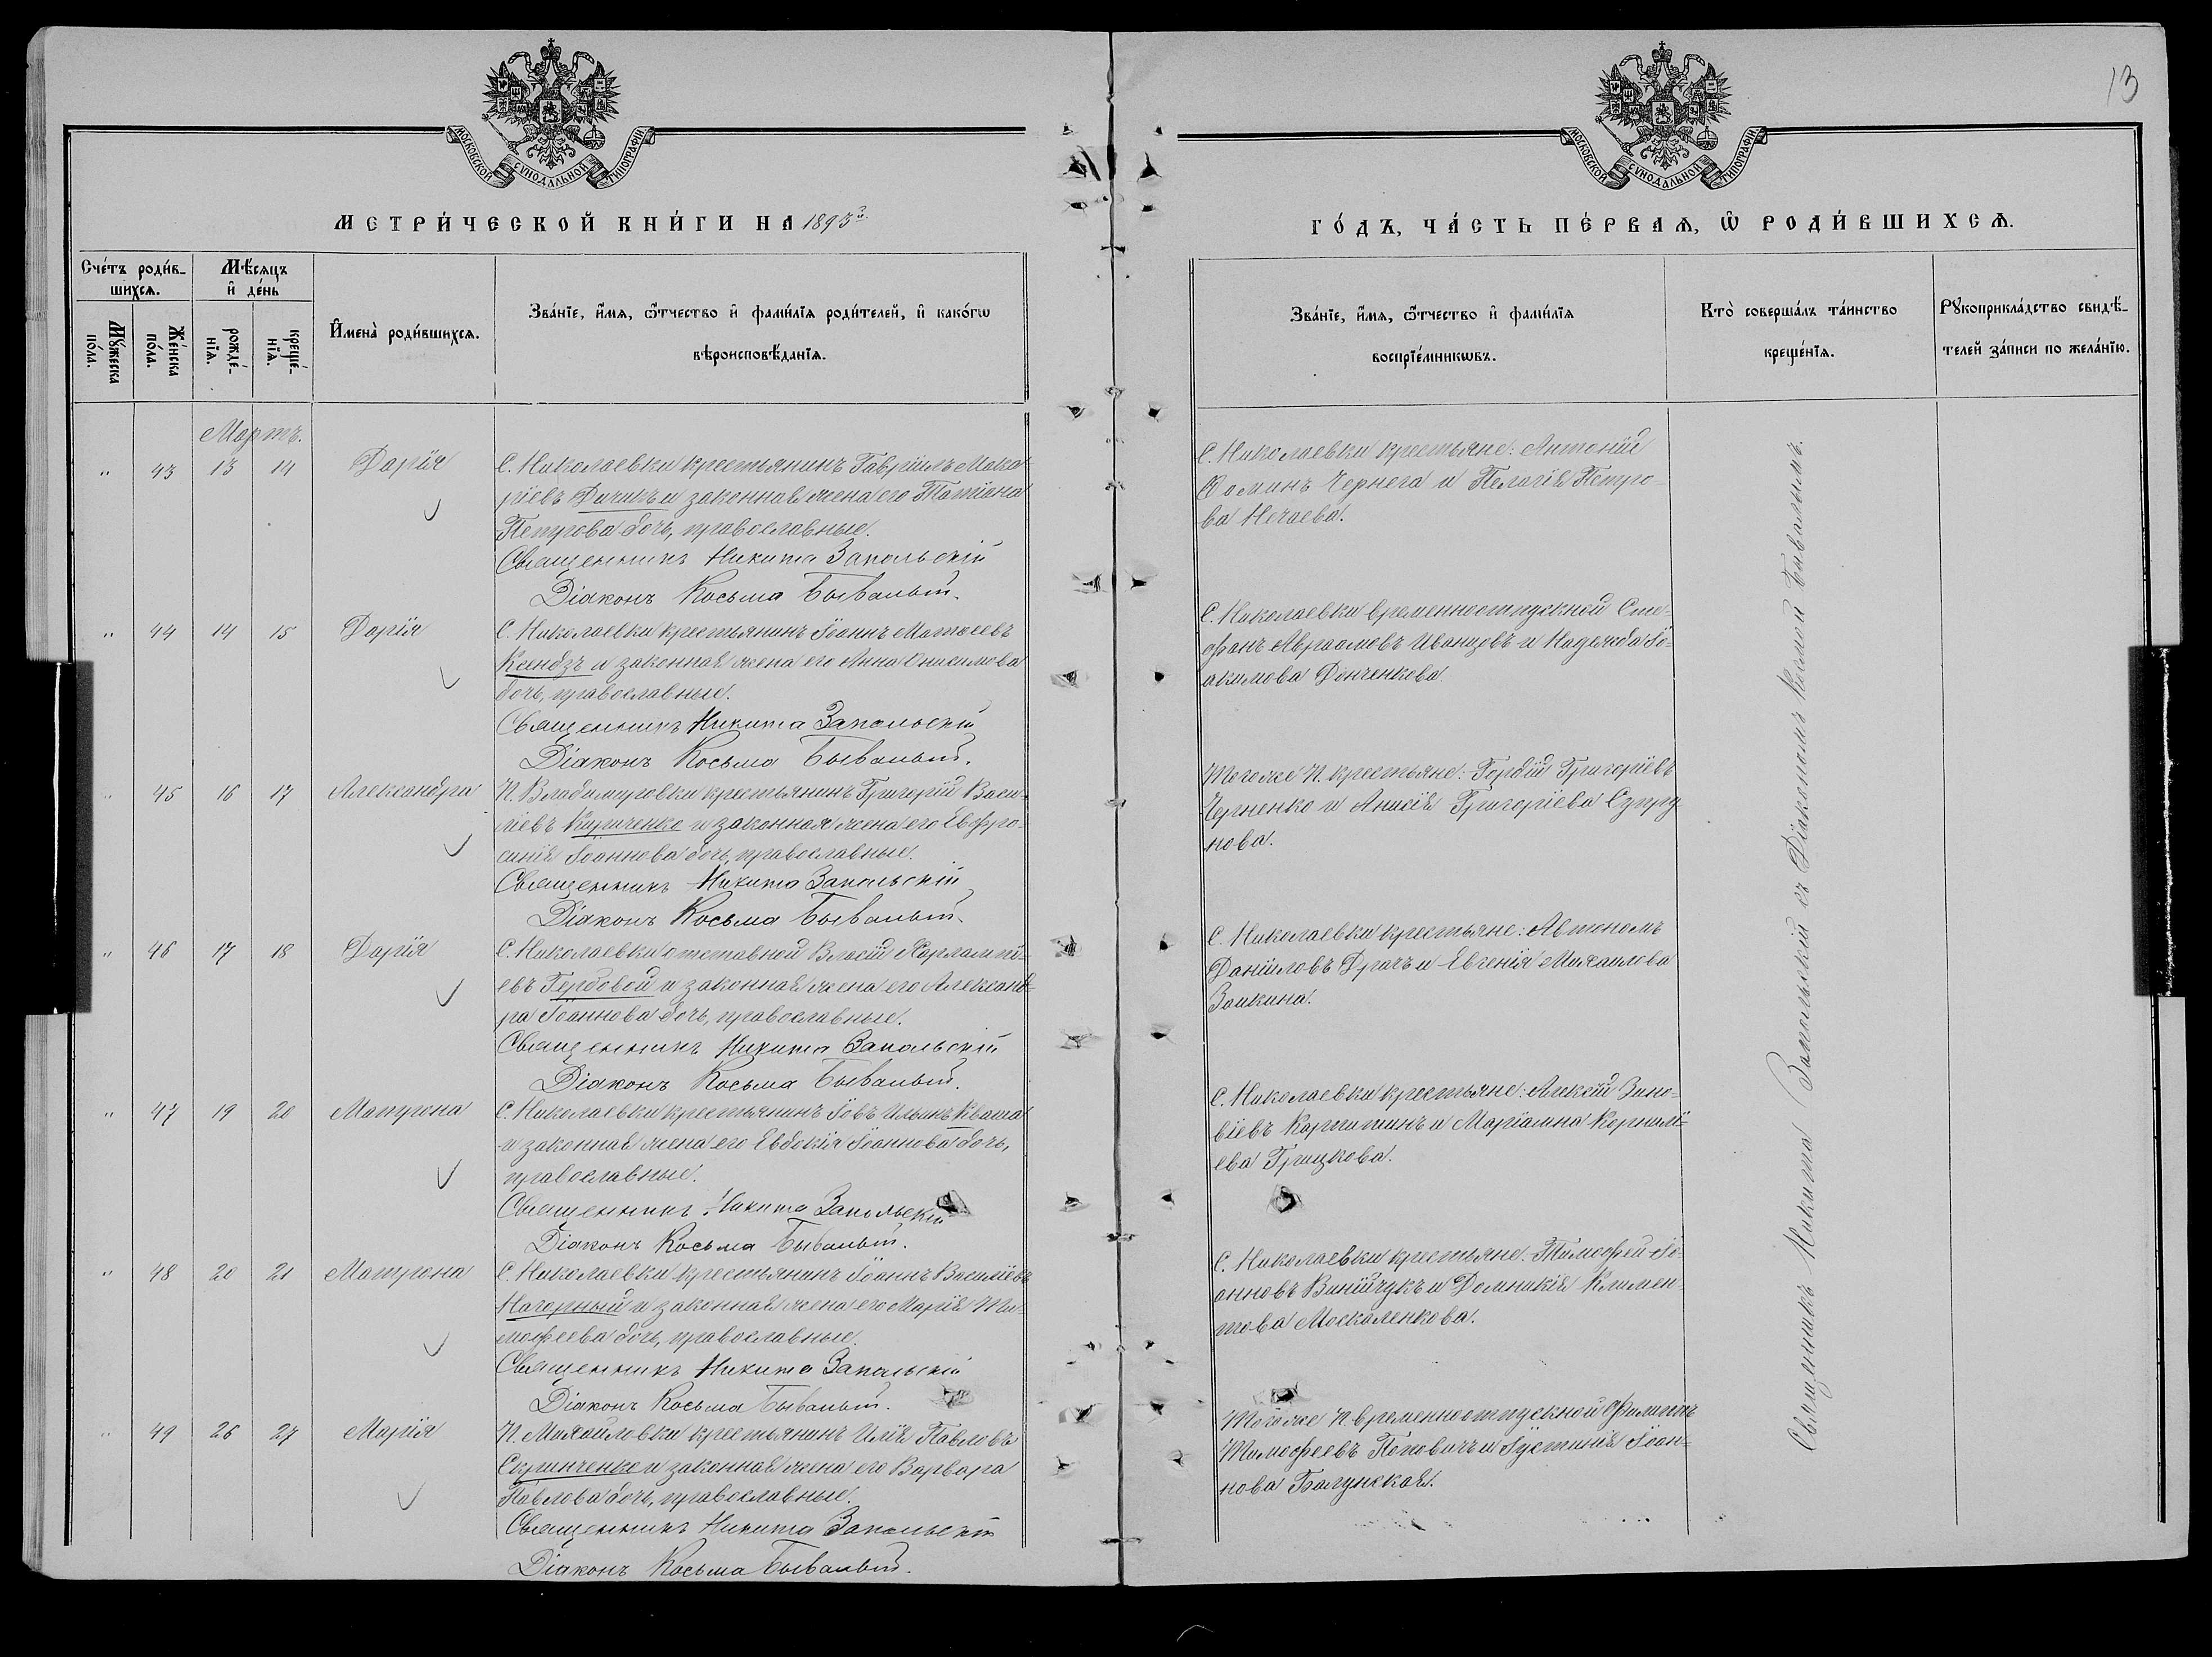 13
МОСКОВСКОЙ СѴНОДАЛЬНОЙ ТИПОГРАФІИ
МОСКОВСКОЙ СѴНОДАЛЬНОЙ ТИПОГРАФІИ
МЕТРИ́ЧЕСКОЙ КНИ́ГИ НА 1893й
ГО́ДЪ, ЧА́СТЬ ПЕ́РВАѦ, Ѽ РОДИ́ВШИХСѦ.
Сче́тъ роди́в-
шихсѧ.
Мꙋ́жеска
по́ла.
Же́нска
по́ла.
Мѣ́сѧцъ
и҆ де́нь
рожде́-
нїѧ.
креще́-
нїѧ.
И҆мена̀ роди́вшихсѧ.
Зва́нїе, и҆́мѧ, ѻ҆́тчество и҆ фами́лїѧ роди́телей, и҆ како́гѡ
вѣроисповѣ́данїѧ.
Зва́нїе, и҆́мѧ, ѻ҆́тчество и҆ фами́лїѧ
воспрїе́мникѡвъ.
Кто̀ соверша́лъ та́инство
креще́нїѧ.
Рꙋкоприкла́дство свидѣ́-
телей за́писи по жела́нїю.
Мартъ.
" 43 13 14 Дарія
С. Николаевки крестьянинъ Гавріилъ Мака-
ріевъ Дичикъ и законная жена его Татіана
Петрова дочь, православные.
Священникъ Никита Запольскій
Діаконъ Косьма Бывалый.
С. Николаевки крестьяне: Антоній
Ѳоминъ Чернега и Пелагія Петро-
ва Нечаева.
" 44 14 15 Дарія
С. Николаевки крестьянинъ Іоаннъ Матѳеевъ
Ксендзъ и законная жена его Анна Онисимова
дочь, православные.
Священникъ Никита Запольскій
Діаконъ Косьма Бывалый.
С. Николаевки временноотпускной Сте-
фанъ Авраамовъ Иванцовъ и Надежда Іо-
акимова Донченкова
" 45 16 17 Александра
П. Владимировки крестьянинъ Григорій Васи-
ліевъ Кириченко и законная жена его Евфро-
синія Іоаннова дочь, православные.
Священникъ Никита Запольскій
Діаконъ Косьма Бывалый.
Тогоже П. крестьяне: Гордій Григоріевъ
Черненко и Анисія Григоріева Супру-
нова.
" 46 17 18 Дарія
С. Николаевки отставной Власій Харлампі-
евъ Гербовой и законная жена его Александ-
ра Іоаннова дочь, православные.
Священникъ Никита Запольскій
Діаконъ Косьма Бывалый.
С. Николаевки крестьяне: Автономъ
Даніиловъ Драчъ и Евгенія Михаилова
Заикина.
" 47 19 20 Матрона
С. Николаевки крестьянинъ Іовъ Ильинъ Кваша
и законная жена его Евдокія Іоаннова дочь,
православные.
Священникъ Никита Запольскій
Діаконъ Косьма Бывалый.
С. Николаевки крестьяне: Алексій Зино-
віевъ и Маріамна Корнилі-
ева Грицкова.
" 48 20 21 Матрона
С. Николаевки крестьянинъ Іоаннъ Василіевъ
Нагорный и законная жена его Марія Ти-
мофеева дочь, православные.
Священникъ Никита Запольскій
Діаконъ Косьма Бывалый.
С. Николаевки крестьяне: Тимофей Іо-
анновъ Винійчукъ и Домникія Климен-
това Москаленкова.
" 49 26 27 Марія
П. Михайловки крестьянинъ Илія Павловъ
Скрипченко и законная жена его Варвара
Павлова дочь, православные.
Священникъ Никита Запольскій
Діаконъ Косьма Бывалый.
Тогоже П. временноотпускной Филиппъ
Тимофеевъ Поповичъ и Іустинія Іоан-
нова Балунская.
Священникъ Никита Запольскій съ Діакономъ Космой Бывалымъ.